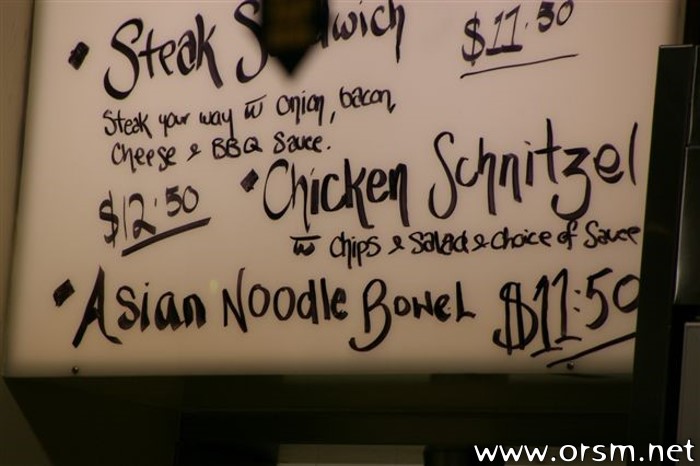 • Steak S wich $11.50
Steak your way w̅ onion, bacon,
Cheese & BBQ Sauce.
$12.50 • Chicken Schnitzel
w̅ chips & Salad & choice of Sauce
• Asian Noodle Bowel $11:50
www.orsm.net